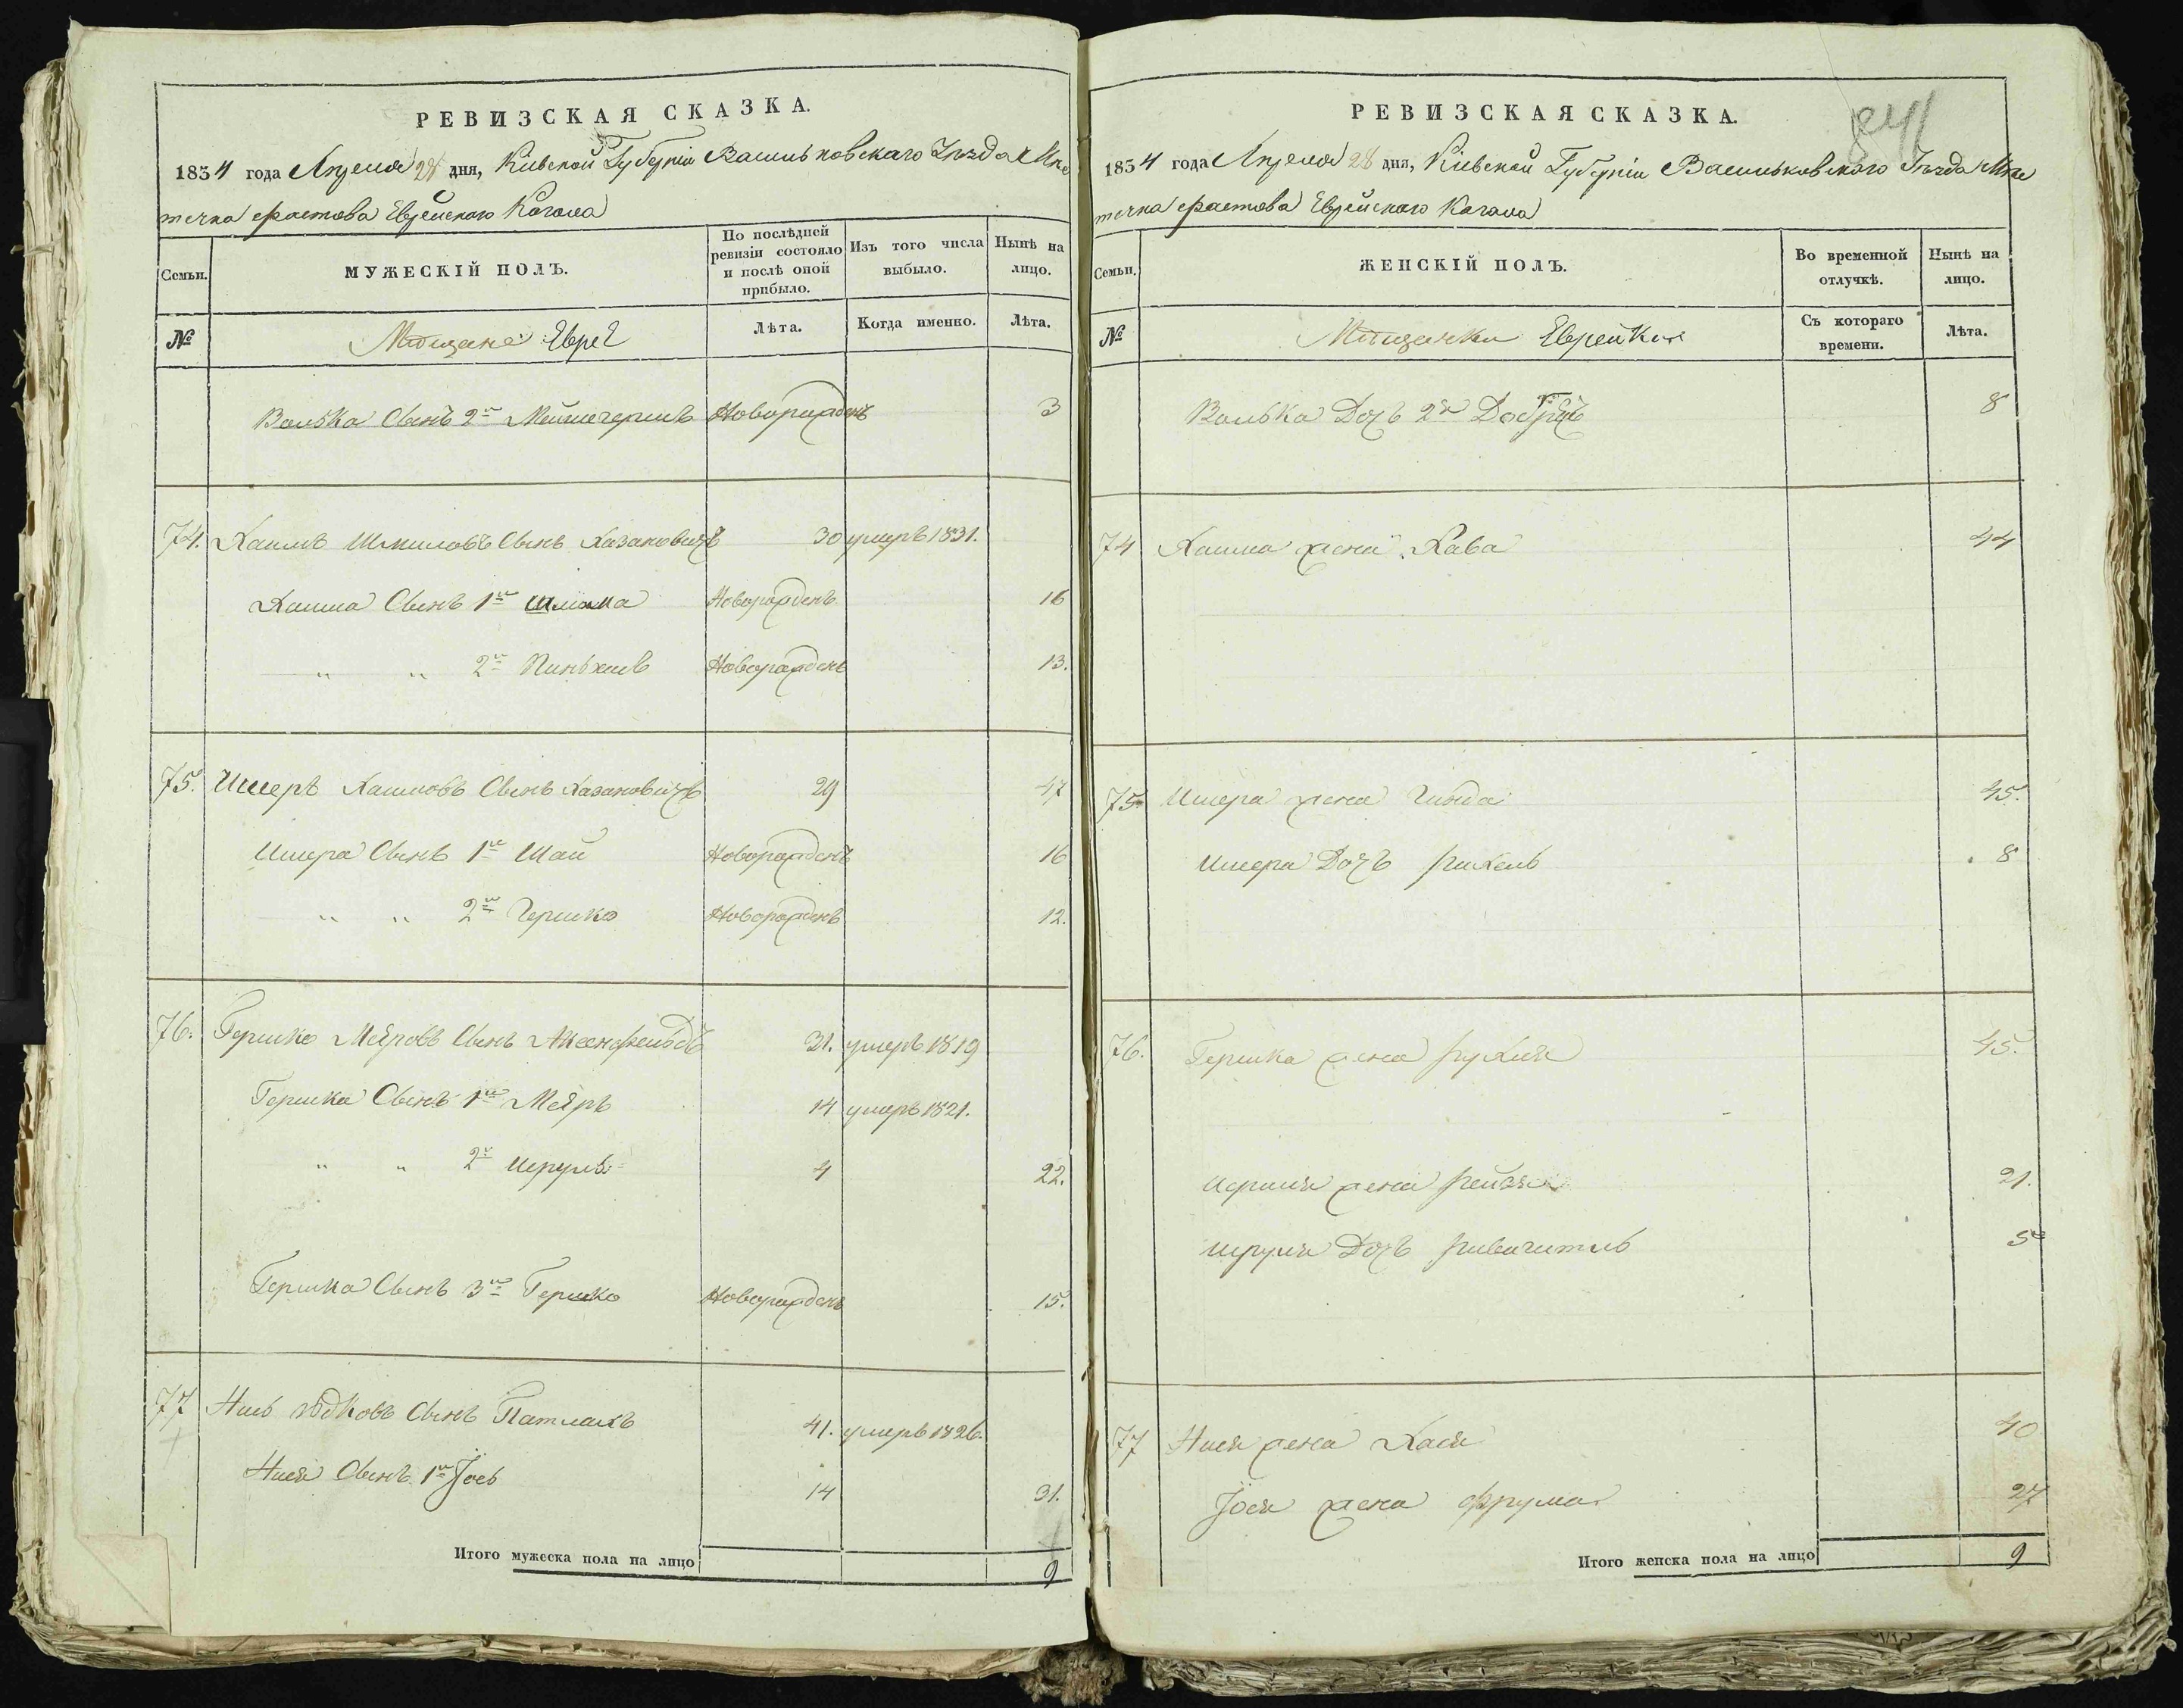 РЕВИЗСКАЯ СКАЗКА.
1834 года Апреля 28 дня, Кіевской Губерніи Васильковскаго Уѣзда Мѣс
течка Фастова Еврейскаго Кагала
Семьи. МУЖЕСКІЙ ПОЛЪ. По послѣдней ревизіи состояло и послѣ оной прибыло. Изъ того числа выбыло. Нынѣ на лицо.
№ Мѣщане Евреи Лѣта. Когда именно. Лѣта.
Волька Сынъ 2й Новорожденъ 3
74. Хаимъ Шмиловъ Сынъ Казановичъ 30 умеръ 1831.
Хаима Сынъ 1й Шлиома Новорожденъ 16
" " 2й Пиньхасъ Новорожденъ 13.
75. Ишеръ Хаимовъ Сынъ Казановичъ 29 47
Ишера Сынъ 1й Шаи Новорожденъ 16
" " 2й Гершко Новорожденъ 12.
76. Гершко Меѣровъ Сынъ Аксенфельдъ 31. умеръ 1819
Гершка Сынъ 1й Меѣръ 14 умеръ 1821.
" " 2й Исруль 4 22.
Гершка Сынъ 3й Гершко Новорожденъ 15.
77 Нись Юдковъ Сынъ Патлахъ 41. умеръ 1826.
Нися Сынъ 1й Іось 14 31.
Итого мужеска пола на лицо 9
841
РЕВИЗСКАЯ СКАЗКА.
1834 года Апреля 28 дня, Кіевской Губерніи Васильковскаго Уѣзда Мѣс
течка Фастова Еврейскаго Кагала
Семьи. ЖЕНСКІЙ ПОЛЪ. Во временной отлучкѣ. Нынѣ на лицо.
№ Мѣщанки Еврейки Съ котораго времени. Лѣта.
Волька Дочь 2я 8
74 Хаима жена Хава 44
75. Ишера жена Гинда 45.
Ишера Дочь Рихель 8
76. Гершка жена Рухля 45.
Исруля жена Рейзя 21.
Исруля Дочь 5
77 Нися жена Хася 40
Іося жена Фрума 27
Итого женска пола на лицо 9